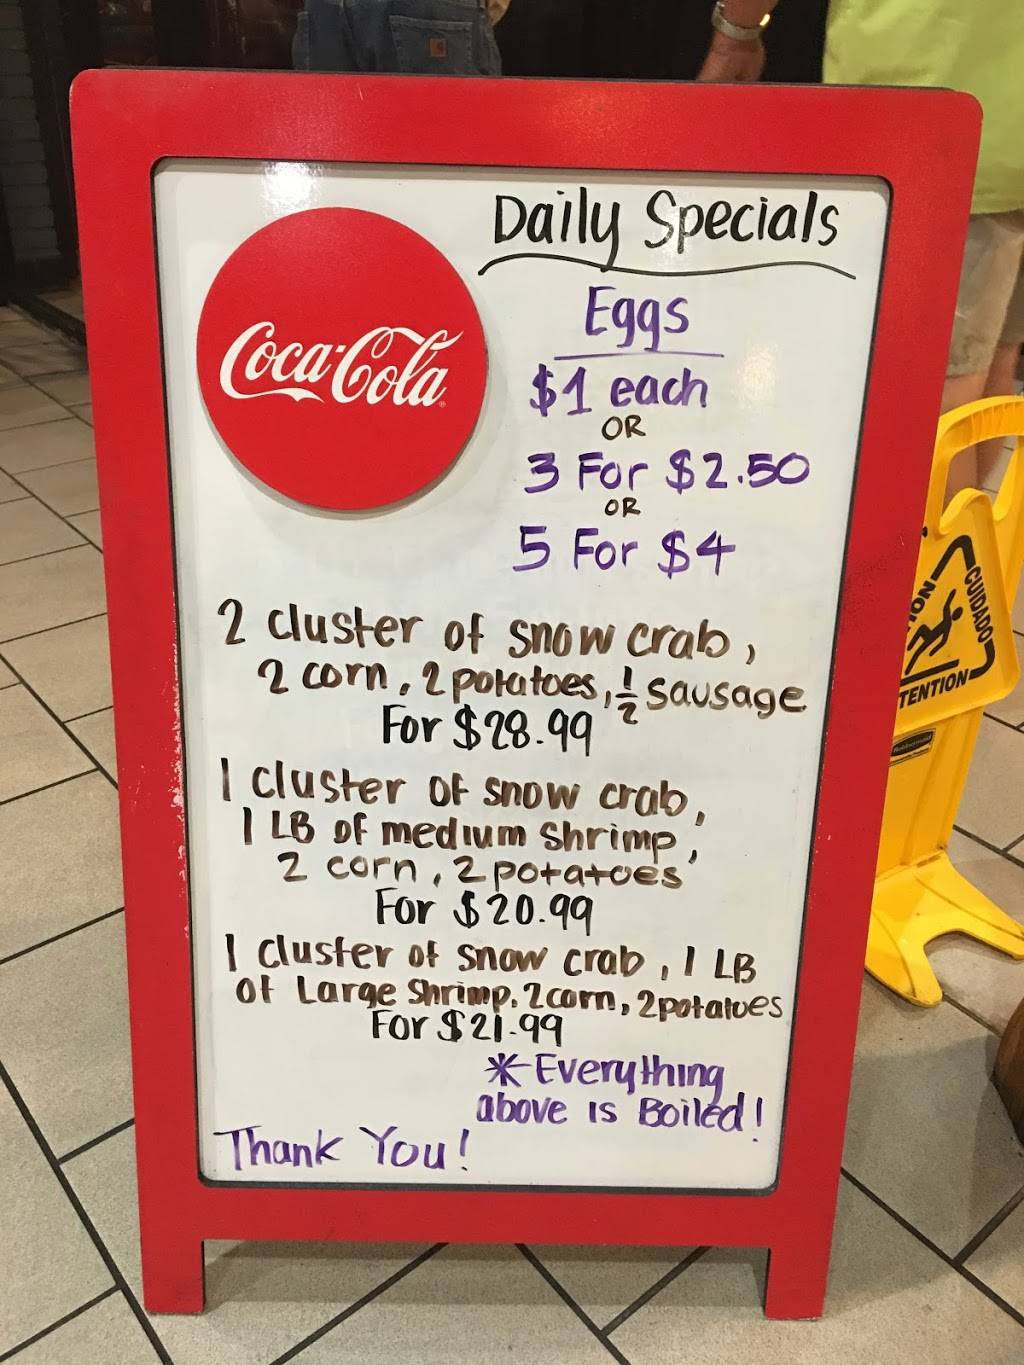 Daily Specials
Coca-Cola
Eggs
$1 each
OR
3 For $2.50
OR
5 For $4
2 cluster of snow crab,
2 corn, 2 potatoes, 1/2 sausage
For $28.99
1 cluster of snow crab,
1 LB of medium shrimp,
2 corn, 2 potatoes
For $20.99
1 cluster of snow crab, 1 LB
of Large Shrimp, 2 corn, 2 potatoes
For $21.99
* Everything
above is Boiled!
Thank You!
CUIDADO